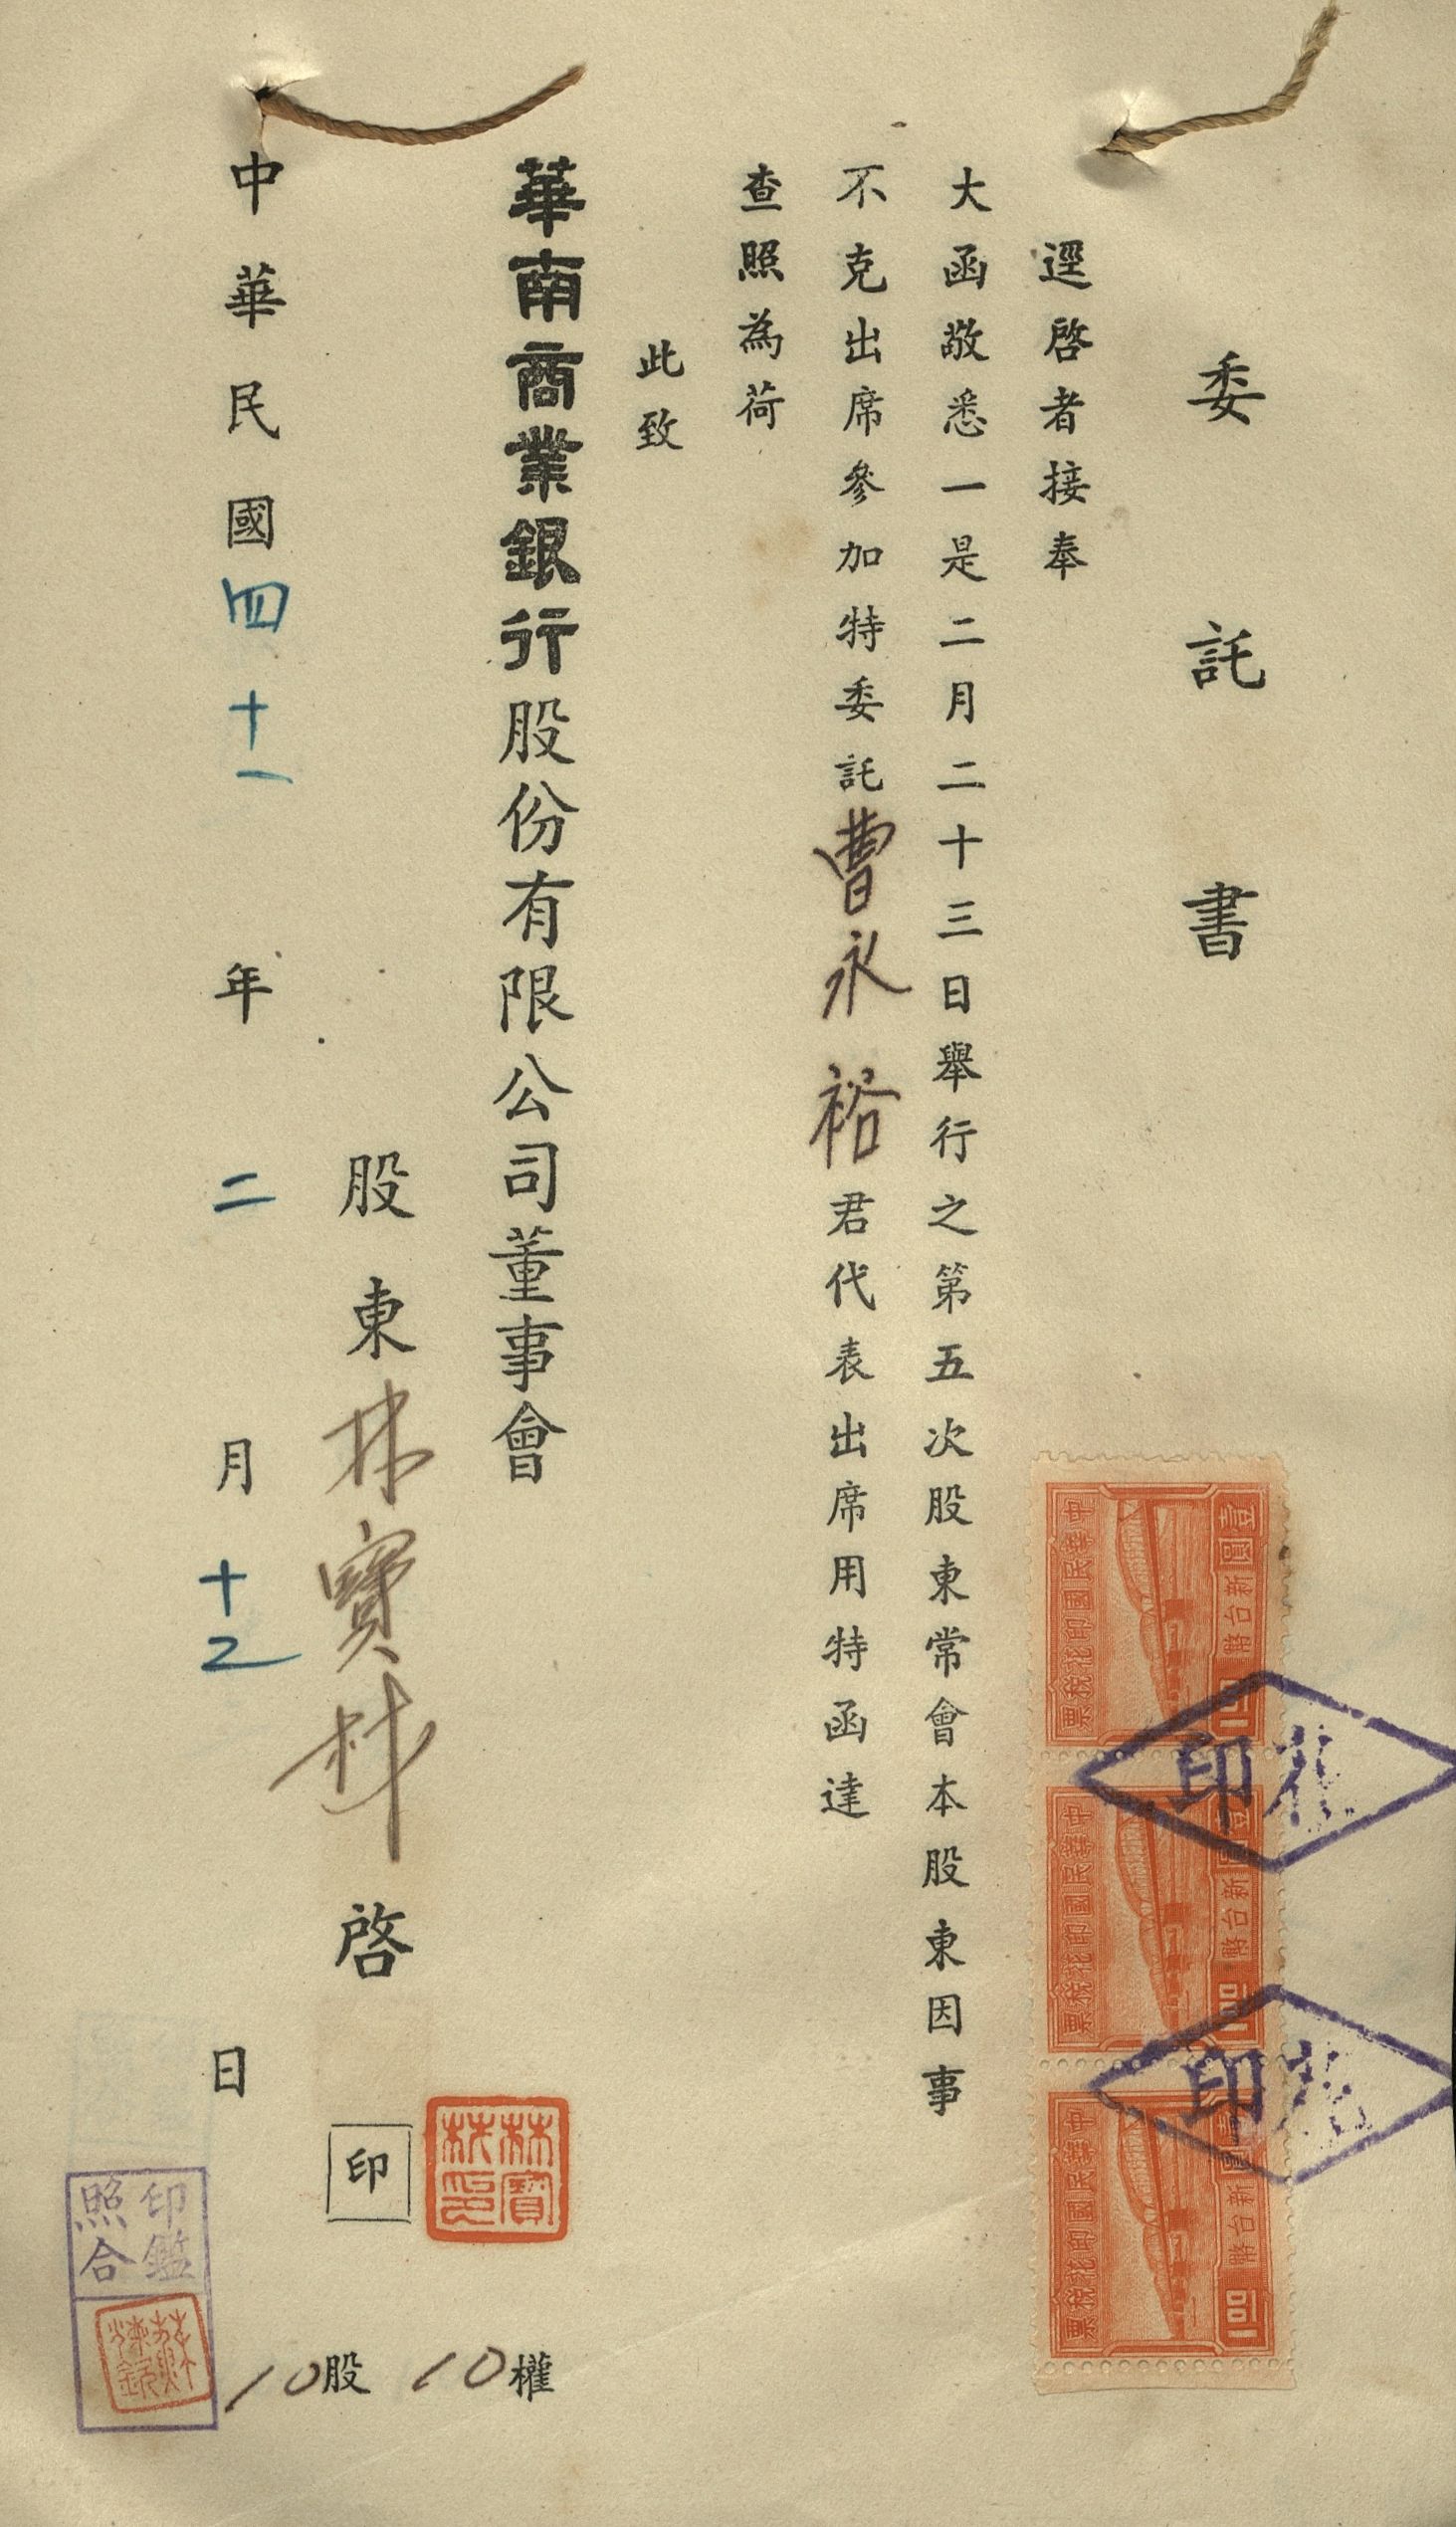 委託書
逕啓者接奉
大函敬悉一是二月二十三日舉行之第五次股東常會本股東因事
不克出席參加特委託曹永裕君代表出席用特函達
查照為荷
此致
華南商業銀行股份有限公司董事會
股東林寶 啓
印
10股 10權
中華民國四十一年二月十二日
中華民國印花稅票
壹圓新台幣
100
中華民國印花稅票
壹圓新台幣
100
中華民國印花稅票
壹圓新台幣
100
印花
印花
林寶
印
印鑑
照合
蘇